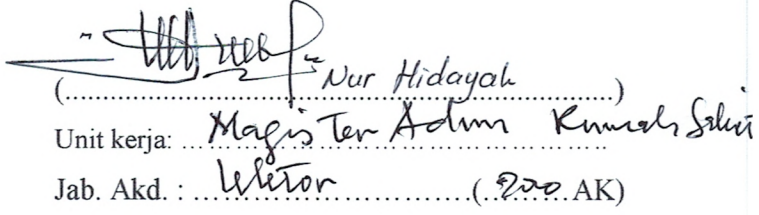 (Nur Hidayah)
Unit kerja: Magister Adm Rumah Sakit
Jab. Akd. : Lektor (200 AK)